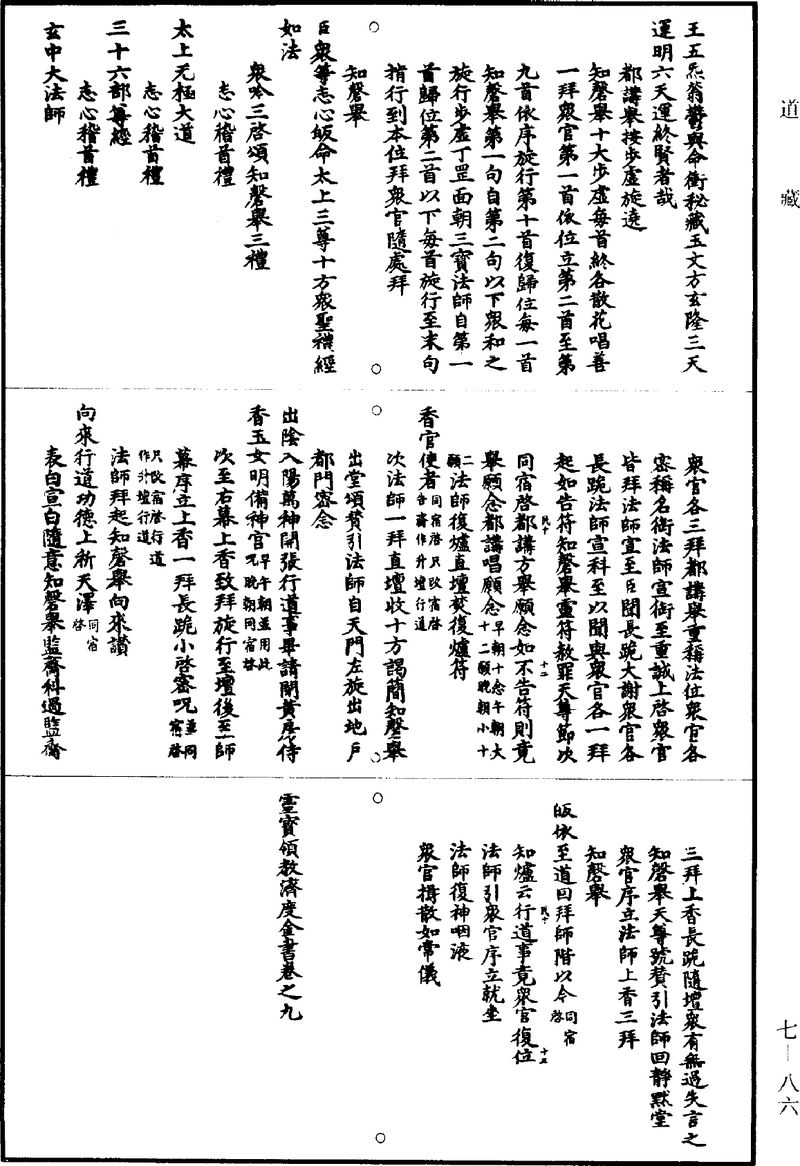 道藏
王五炁翁鬱與命衡秘藏玉文方玄隆三天
運明六天運終賢者哉
都講舉按步虛旋遶
知磬舉十大步虛每首終各散花唱善
一拜眾官第一首依位立第二首至第
九首依序旋行第十首復歸位每一首
知磬舉第一句自第二句以下眾和之
旋行步虛丁罡面朝三寶法師自第一
首歸位第二首以下每首旋行至末句
揹行到本位拜眾官隨處拜
知磬舉
臣眾等志心皈命太上三尊十方眾聖禮經
如法
眾吟三啓頌知磬舉三禮
志心稽首禮
太上无極大道
志心稽首禮
三十六部尊經
志心稽首禮
玄中大法師
眾官各三拜都講舉重稱法位眾官各
密稱名銜法師宣銜至重誠上啓眾官
皆拜法師宣至臣閉長跪大謝眾官各
長跪法師宣科至以聞與眾官各一拜
起如告符知磬舉靈符赦罪天尊節次
同宿啓都講方舉願念如不告符則竟
舉願念都講唱願念早朝十念午朝大十二願晚朝小十二願
法師復爐直壇焚復爐符
香官使者同宿啓只改宿啓告齋作升壇行道
次法師一拜直壇收十方謁簡知磬舉
出堂頌贊引法師自天門左旋出地戶
都門密念
出陰入陽萬神開張行道事畢請開黃房侍
香玉女明備神官早午朝並用此咒晚朝同宿啓
次至右幕上香致拜旋行至壇後至師
幕序立上香一拜長跪小啓密呪並同宿啓
只改宿啓行道作升壇行道
法師拜起知磬舉向來讚
向來行道功德上祈天澤同宿啓
表白宣白隨意知磬舉監齋科過監齋
三拜上香長跪隨壇眾有無過失言之
知磬舉天尊號贊引法師回靜默堂
眾官序立法師上香三拜
知磬舉
皈依至道回拜師階以今同宿啓
知爐云行道事竟眾官復位
法師引眾官序立就坐
法師復神咽液
眾官揖散如常儀
靈寶領教濟度金書卷之九
七－八六